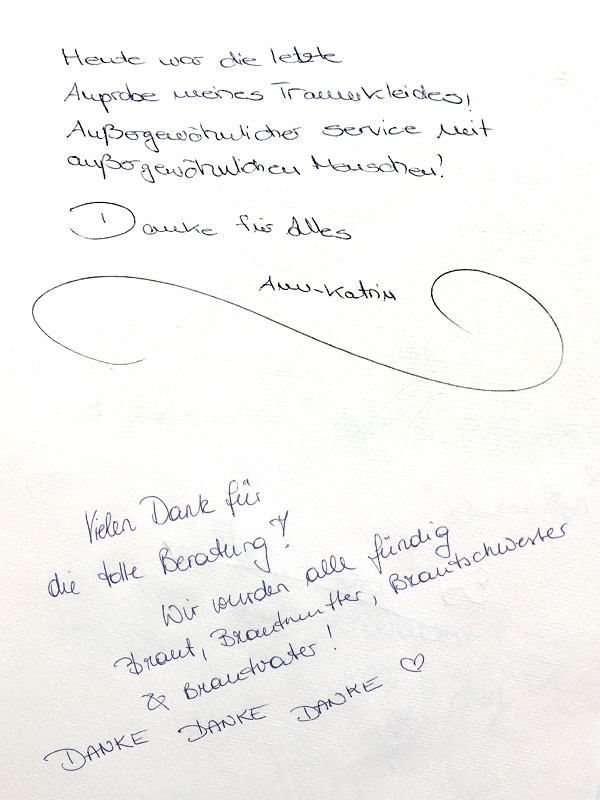 Heute war die letzte
Anprobe meines Traumkleides!
Außergewöhnlicher Service mit
außergewöhnlichen Menschen!
Danke für Alles
Ann-Katrin
Vielen Dank für
die tolle Beratung!
Wir wurden alle fündig
Braut, Brautmutter, Brautschwester
& Brautvater!
DANKE DANKE DANKE ♡